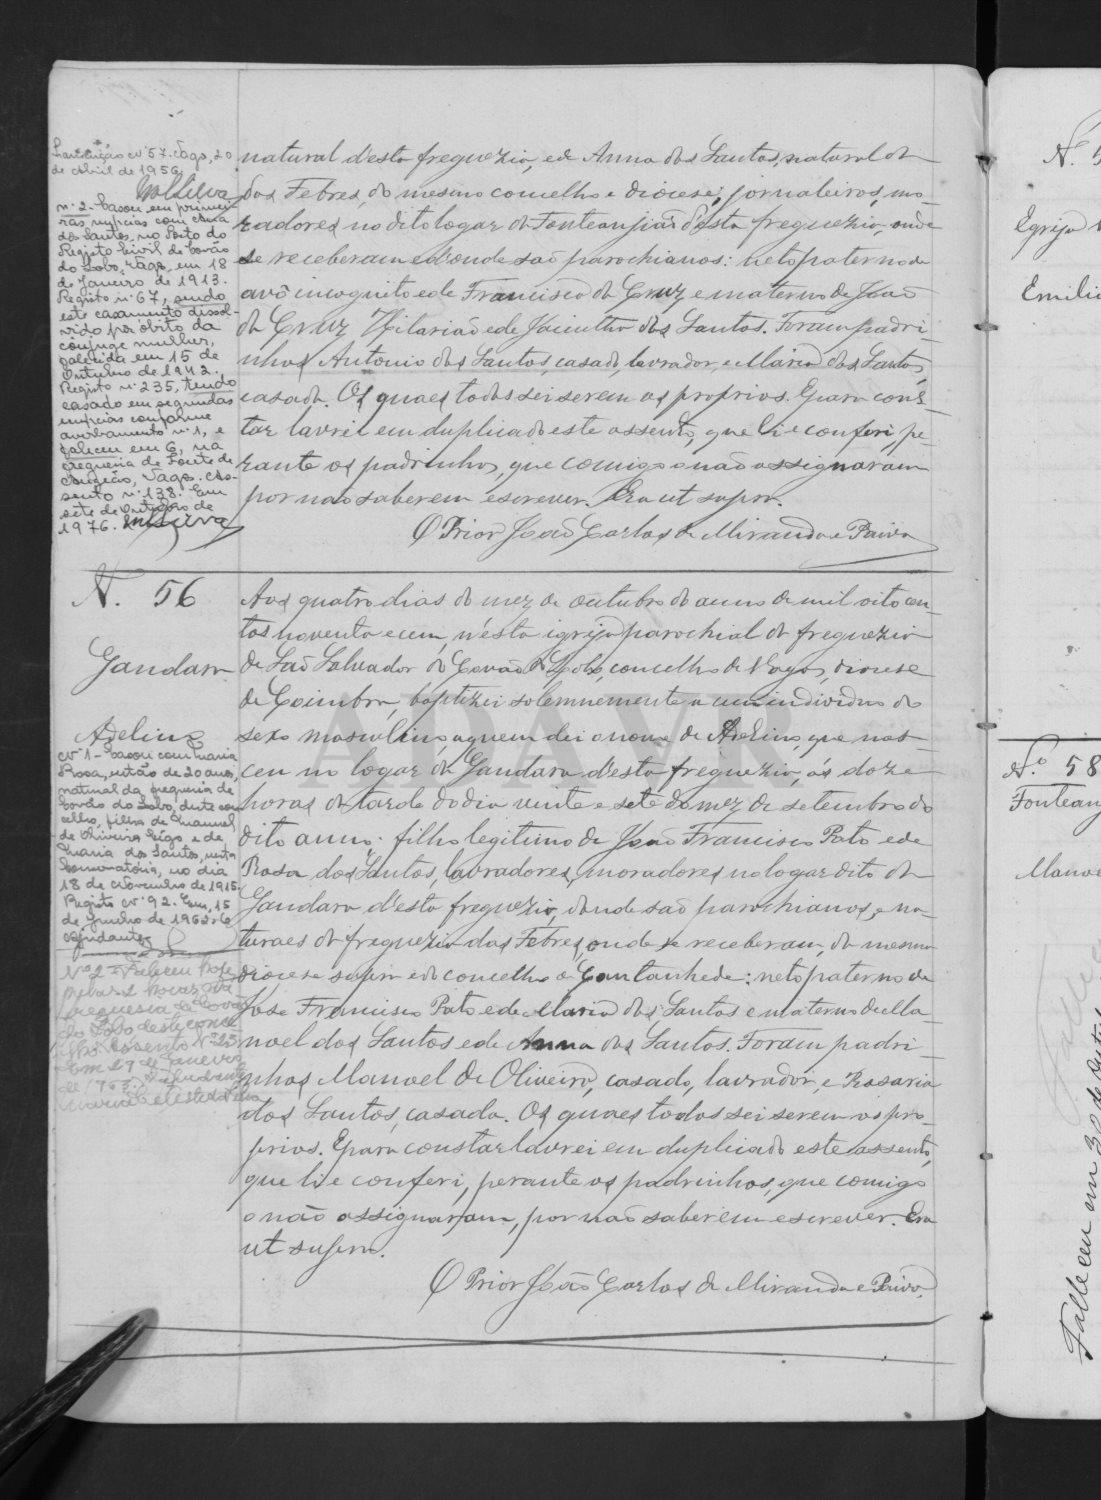 Cantanhede nº 57. Vagos, 20
de Abril de 1956.
nº 2 - Casou em primei-
ras nupcias com Ana
dos Santos, no Posto do
Registo Civil de Covão
do Lobo, Vagos, em 18
de Janeiro de 1913.
Registo nº 67, sendo
este casamento dissol-
vido por óbito da
cônjuge mulher,
falecida em 15 de
Outubro de 1942.
Registo nº 235, tendo
casado em segundas
nupcias conforme
averbamento nº 1, e
faleceu em 6, na
freguesia de Fonte de
Angeão, Vagos. As-
sento nº 138. Em
sete de Outubro de
1976.
natural d'esta freguezia, e de Anna dos Santos, natural de
das Febres, do mesmo concelho e diocese, jornaleiros, mo-
radores no dito logar de Fonteangião d'esta freguezia, onde
se receberam e d'onde são parochianos: neto paterno de
avô incognito e de Francisca da Cruz e materno de João
da Cruz Hilarião e de Jacintha dos Santos. Foram padri-
nhos Antonio dos Santos, casado, lavrador, e Maria dos Santos,
casada. Os quaes todos sei serem os proprios. E para cons-
tar lavrei em duplicado este assento, que li e conferi, pe-
rante os padrinhos, que comigo o não assignaram
por não saberem escrever. Era ut supra.
O Prior João Carlos de Miranda e Paiva
N. 56
Gandara
Adelino
Nº 1 - Casou com Maria
Rosa, então de 20 anos,
natural da freguesia de
Covão do Lobo, deste con-
celho, filha de Manuel
de Oliveira Frigo e de
Maria dos Santos, nesta
Conservatória, no dia
18 de Novembro de 1915.
Registo nº 92. Em, 15
de Junho de 1962. O
ajudante,
Nº 2 - Faleceu hoje
pelas 2 horas na
freguesia de Covão
do Lobo deste conce-
lho. Assento nº 23
Em 27 de Janeiro
de 1963. O ajudante
Maria Celeste da Silva
Aos quatro dias do mez de outubro do anno de mil oito cen-
tos noventa e cem, n'esta igreja parochial da freguezia
de São Salvador do Covão do Lobo, concelho de Vagos, diocese
de Coimbra, baptizei solemnemente a um individuo do
sexo masculino, a quem dei o nome de Adelino, que nas-
ceu no logar da Gandara d'esta freguezia, ás doze
horas da tarde do dia vinte e sete do mez de setembro do
dito anno: filho legitimo de João Francisco Pato e de
Rosa dos Santos, lavradores, moradores no logar dito da
Gandara d'esta freguezia, d'onde são parochianos, e na-
turaes da freguezia das Febres, onde se receberam, da mesma
diocese supra e do concelho de Cantanhede: neto paterno de
José Francisco Pato e de Maria dos Santos e materno de Ma-
noel dos Santos e de Anna dos Santos. Foram padri-
nhos Manoel de Oliveira, casado, lavrador, e Rosaria
dos Santos, casada. Os quaes todos sei serem os pro-
prios. E para constar lavrei em duplicado este assento,
que li e conferi, perante os padrinhos, que comigo
o não assignaram, por não saberem escrever. Era
ut supra.
O Prior João Carlos de Miranda e Paiva.
N. 5
Egrija
Emilia
N.º 58
Fonteang
Manoe
Falleceu em 30 de Out
ADAVR